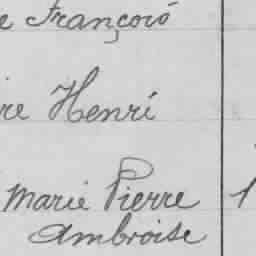 e François
re Henri
Marie Pierre 1
Ambroise